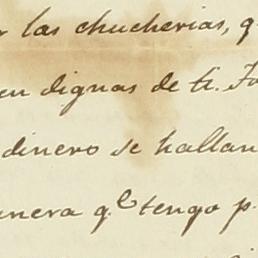 r las chucherias, q
en dignas de ti. Jo
dinero se hallan
anera q.e tengo p.